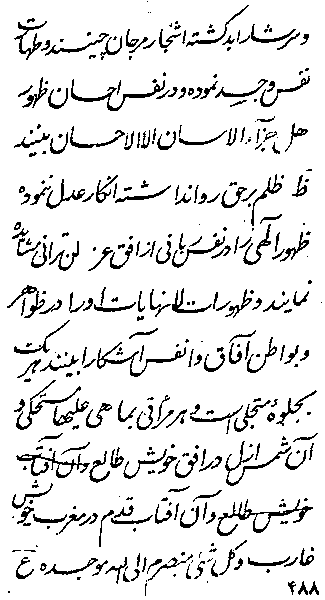 و سرشار ابد گشته اشجار مرجان چینند و طهارت
نفس و جسد نموده و در نفس احسان ظهور
هل جزآء الاسان الا الاحسان بینند
ظ ظلم بر حق روا نداشته انکار عدل ننموده
ظهور آلهی را در نفس بانی از افق عز لن ترانی مشاهده
نمایند و ظهورات لانهایات او را در ظواهر
و بواطن آفاق و انفس آشکارا بینند هر یک
بجلوهٔ متجلی است و هر مرآتی بما هی علیها مستحکی و
آن شمس ازل در افق خویش طالع و آن آفتاب
خویش طالع و آن آفتاب قدم در مغرب خویش
غارب و کل شئ منصرم الی الله موجده ع
۴۸۸